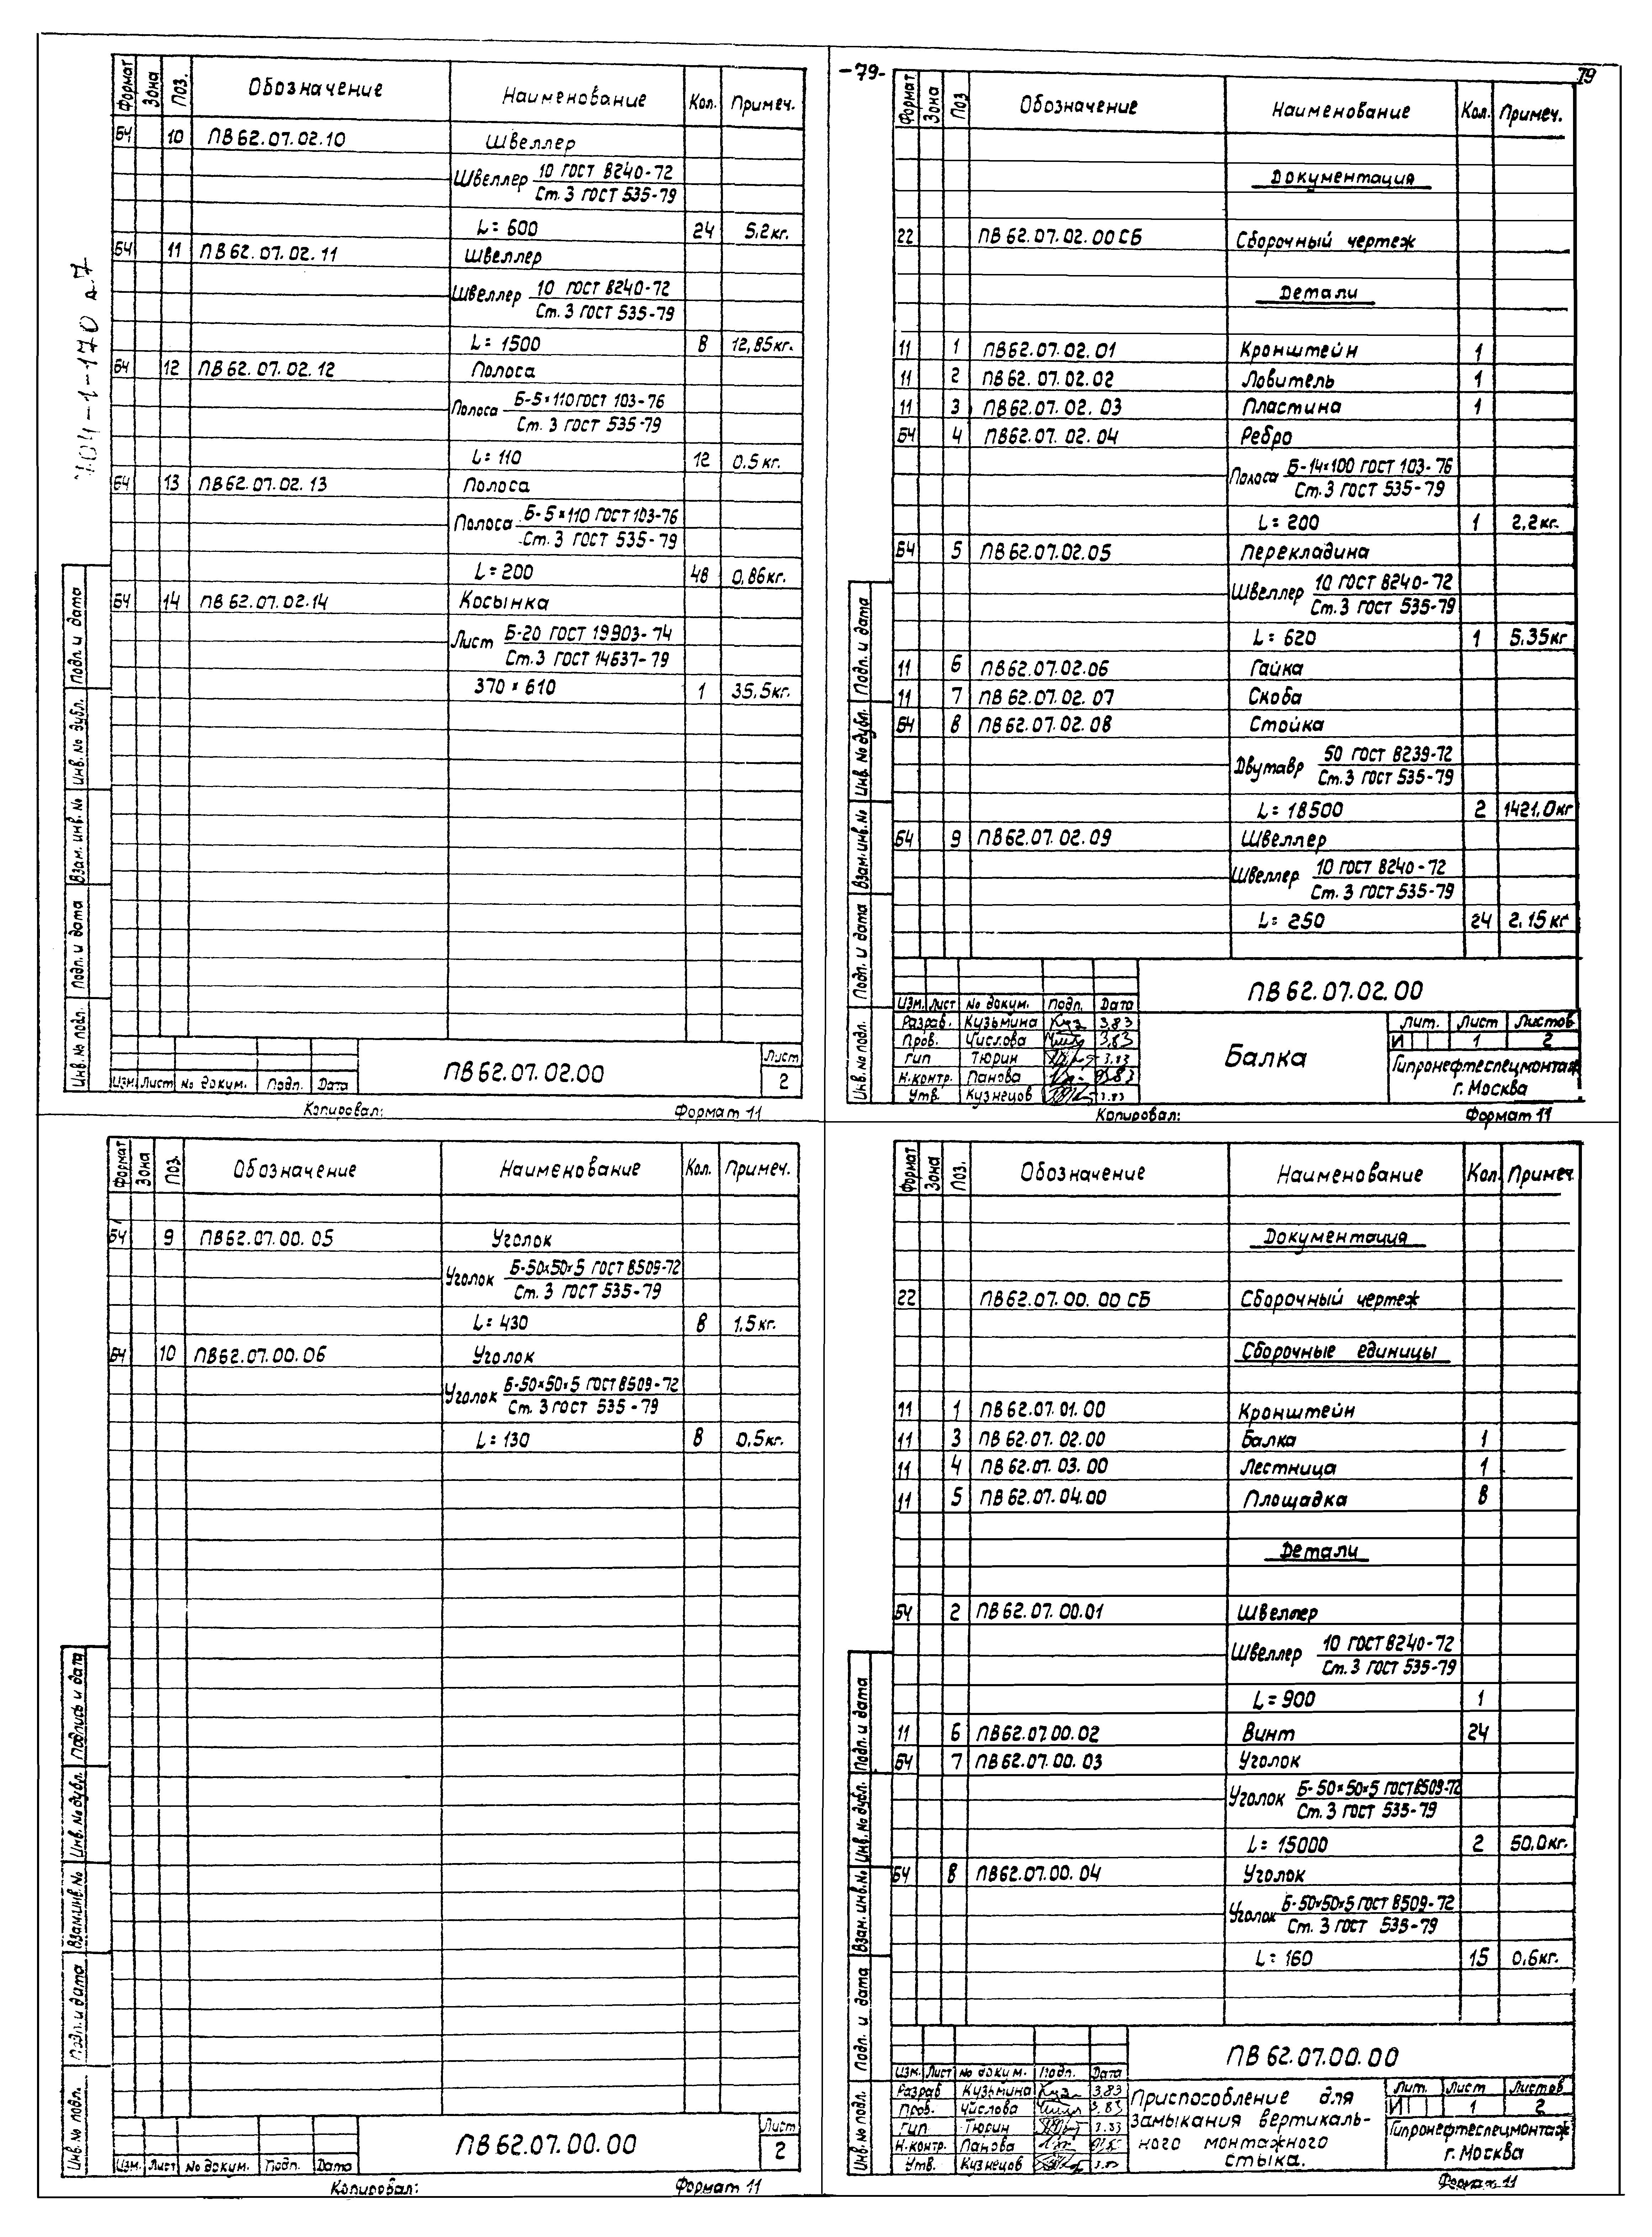 -79-
79
704-1-170 а.7
Формат Зона Поз. Обозначение Наименование Кол. Примеч.
БЧ 10 ПВ62.07.02.10 Швеллер
Швеллер 10 ГОСТ 8240-72
Ст.3 ГОСТ 535-79
L=600 24 5,2кг.
БЧ 11 ПВ62.07.02.11 Швеллер
Швеллер 10 ГОСТ 8240-72
Ст.3 ГОСТ 535-79
L=1500 8 12,85кг.
БЧ 12 ПВ62.07.02.12 Полоса
Полоса Б-5×110 ГОСТ 103-76
Ст.3 ГОСТ 535-79
L=110 12 0.5кг.
БЧ 13 ПВ62.07.02.13 Полоса
Полоса Б-5×110 ГОСТ 103-76
Ст.3 ГОСТ 535-79
L=200 48 0,86кг.
БЧ 14 ПВ62.07.02.14 Косынка
Лист Б-20 ГОСТ 19903-74
Ст.3 ГОСТ 14637-79
370×610 1 35.5кг.
Инв. № подл. Подп. и дата Взам. инв. № Инв. № дубл. Подп. и дата
Изм. Лист № докум. Подп. Дата
ПВ62.07.02.00
Лист
2
Копировал: Формат 11
Формат Зона Поз Обозначение Наименование Кол. Примеч.
Документация
22 ПВ62.07.02.00СБ Сборочный чертеж
Детали
11 1 ПВ62.07.02.01 Кронштейн 1
11 2 ПВ62.07.02.02 Ловитель 1
11 3 ПВ62.07.02.03 Пластина 1
БЧ 4 ПВ62.07.02.04 Ребро
Полоса Б-14×100 ГОСТ 103-76
Ст.3 ГОСТ 535-79
L=200 1 2,2кг.
БЧ 5 ПВ62.07.02.05 Перекладина
Швеллер 10 ГОСТ 8240-72
Ст.3 ГОСТ 535-79
L=620 1 5.35кг
11 6 ПВ62.07.02.06 Гайка
11 7 ПВ62.07.02.07 Скоба
БЧ 8 ПВ62.07.02.08 Стойка
Двутавр 50 ГОСТ 8239-72
Ст.3 ГОСТ 535-79
L=18500 2 1421,0кг
БЧ 9 ПВ62.07.02.09 Швеллер
Швеллер 10 ГОСТ 8240-72
Ст.3 ГОСТ 535-79
L=250 24 2,15кг
Инв. № подл. Подп. и дата Взам. инв. № Инв. № дубл. Подп. и дата
Изм. Лист № докум. Подп. Дата
Разраб. Кузьмина 3,83
Пров. Числова 3,83
ГИП Тюрин 3.83
Н.контр. Панова
Утв. Кузнецов 3.83
ПВ62.07.02.00
Балка
Лит. Лист Листов
И 1 2
Гипронефтеспецмонтаж
г. Москва
Копировал: Формат 11
Формат Зона Поз. Обозначение Наименование Кол. Примеч.
БЧ 9 ПВ62.07.00.05 Уголок
Уголок Б-50×50×5 ГОСТ 8509-72
Ст.3 ГОСТ 535-79
L=430 8 1.5кг.
БЧ 10 ПВ62.07.00.06 Уголок
Уголок Б-50×50×5 ГОСТ 8509-72
Ст.3 ГОСТ 535-79
L=130 8 0.5кг.
Инв. № подл. Подп. и дата Взам. инв. № Инв. № дубл. Подпись и дата
Изм. Лист № докум. Подп. Дата
ПВ62.07.00.00
Лист
2
Копировал: Формат 11
Формат Зона Поз. Обозначение Наименование Кол. Примеч.
Документация
22 ПВ62.07.00.00СБ Сборочный чертеж
Сборочные единицы
11 1 ПВ62.07.01.00 Кронштейн
11 3 ПВ62.07.02.00 Балка 1
11 4 ПВ62.07.03.00 Лестница 1
11 5 ПВ62.07.04.00 Площадка 8
Детали
БЧ 2 ПВ62.07.00.01 Швеллер
Швеллер 10 ГОСТ 8240-72
Ст.3 ГОСТ 535-79
L=900 1
11 6 ПВ62.07.00.02 Винт 24
БЧ 7 ПВ62.07.00.03 Уголок
Уголок Б-50×50×5 ГОСТ 8509-72
Ст.3 ГОСТ 535-79
L=15000 2 50.0кг.
БЧ 8 ПВ62.07.00.04 Уголок
Уголок Б-50×50×5 ГОСТ 8509-72
Ст.3 ГОСТ 535-79
L=160 15 0,6кг.
Инв. № подл. Подп. и дата Взам. инв. № Инв. № дубл. Подп. и дата
Изм. Лист № докум. Подп. Дата
Разраб Кузьмина 3,83
Пров. Числова 3.83
ГИП Тюрин 3.83
Н.контр. Панова
Утв. Кузнецов
ПВ62.07.00.00
Приспособление для
замыкания вертикаль-
ного монтажного
стыка.
Лит. Лист Листов
И 1 2
Гипронефтеспецмонтаж
г. Москва
Формат 11